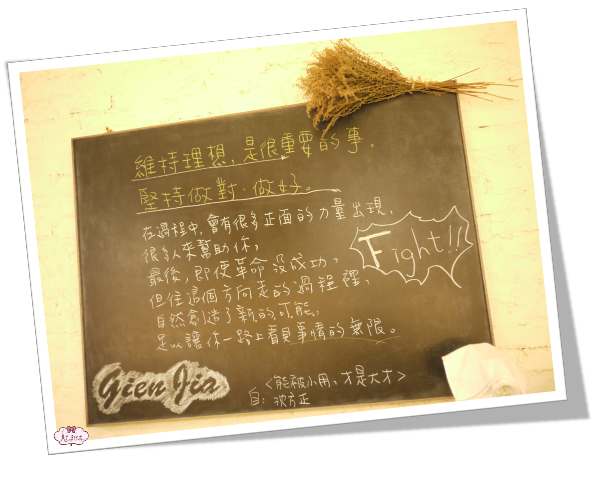 維持理想，是很重要的事。
堅持做對、做好。
在過程中，會有很多正面的力量出現，
很多人來幫助你，
最後，即使革命沒成功，
但往這個方向走的過程裡，
自然創造了新的可能，
足以讓你一路上看見事情的無限。
Fight!!
Gien Jia
<能被小用，才是大才>
自: 沈方正